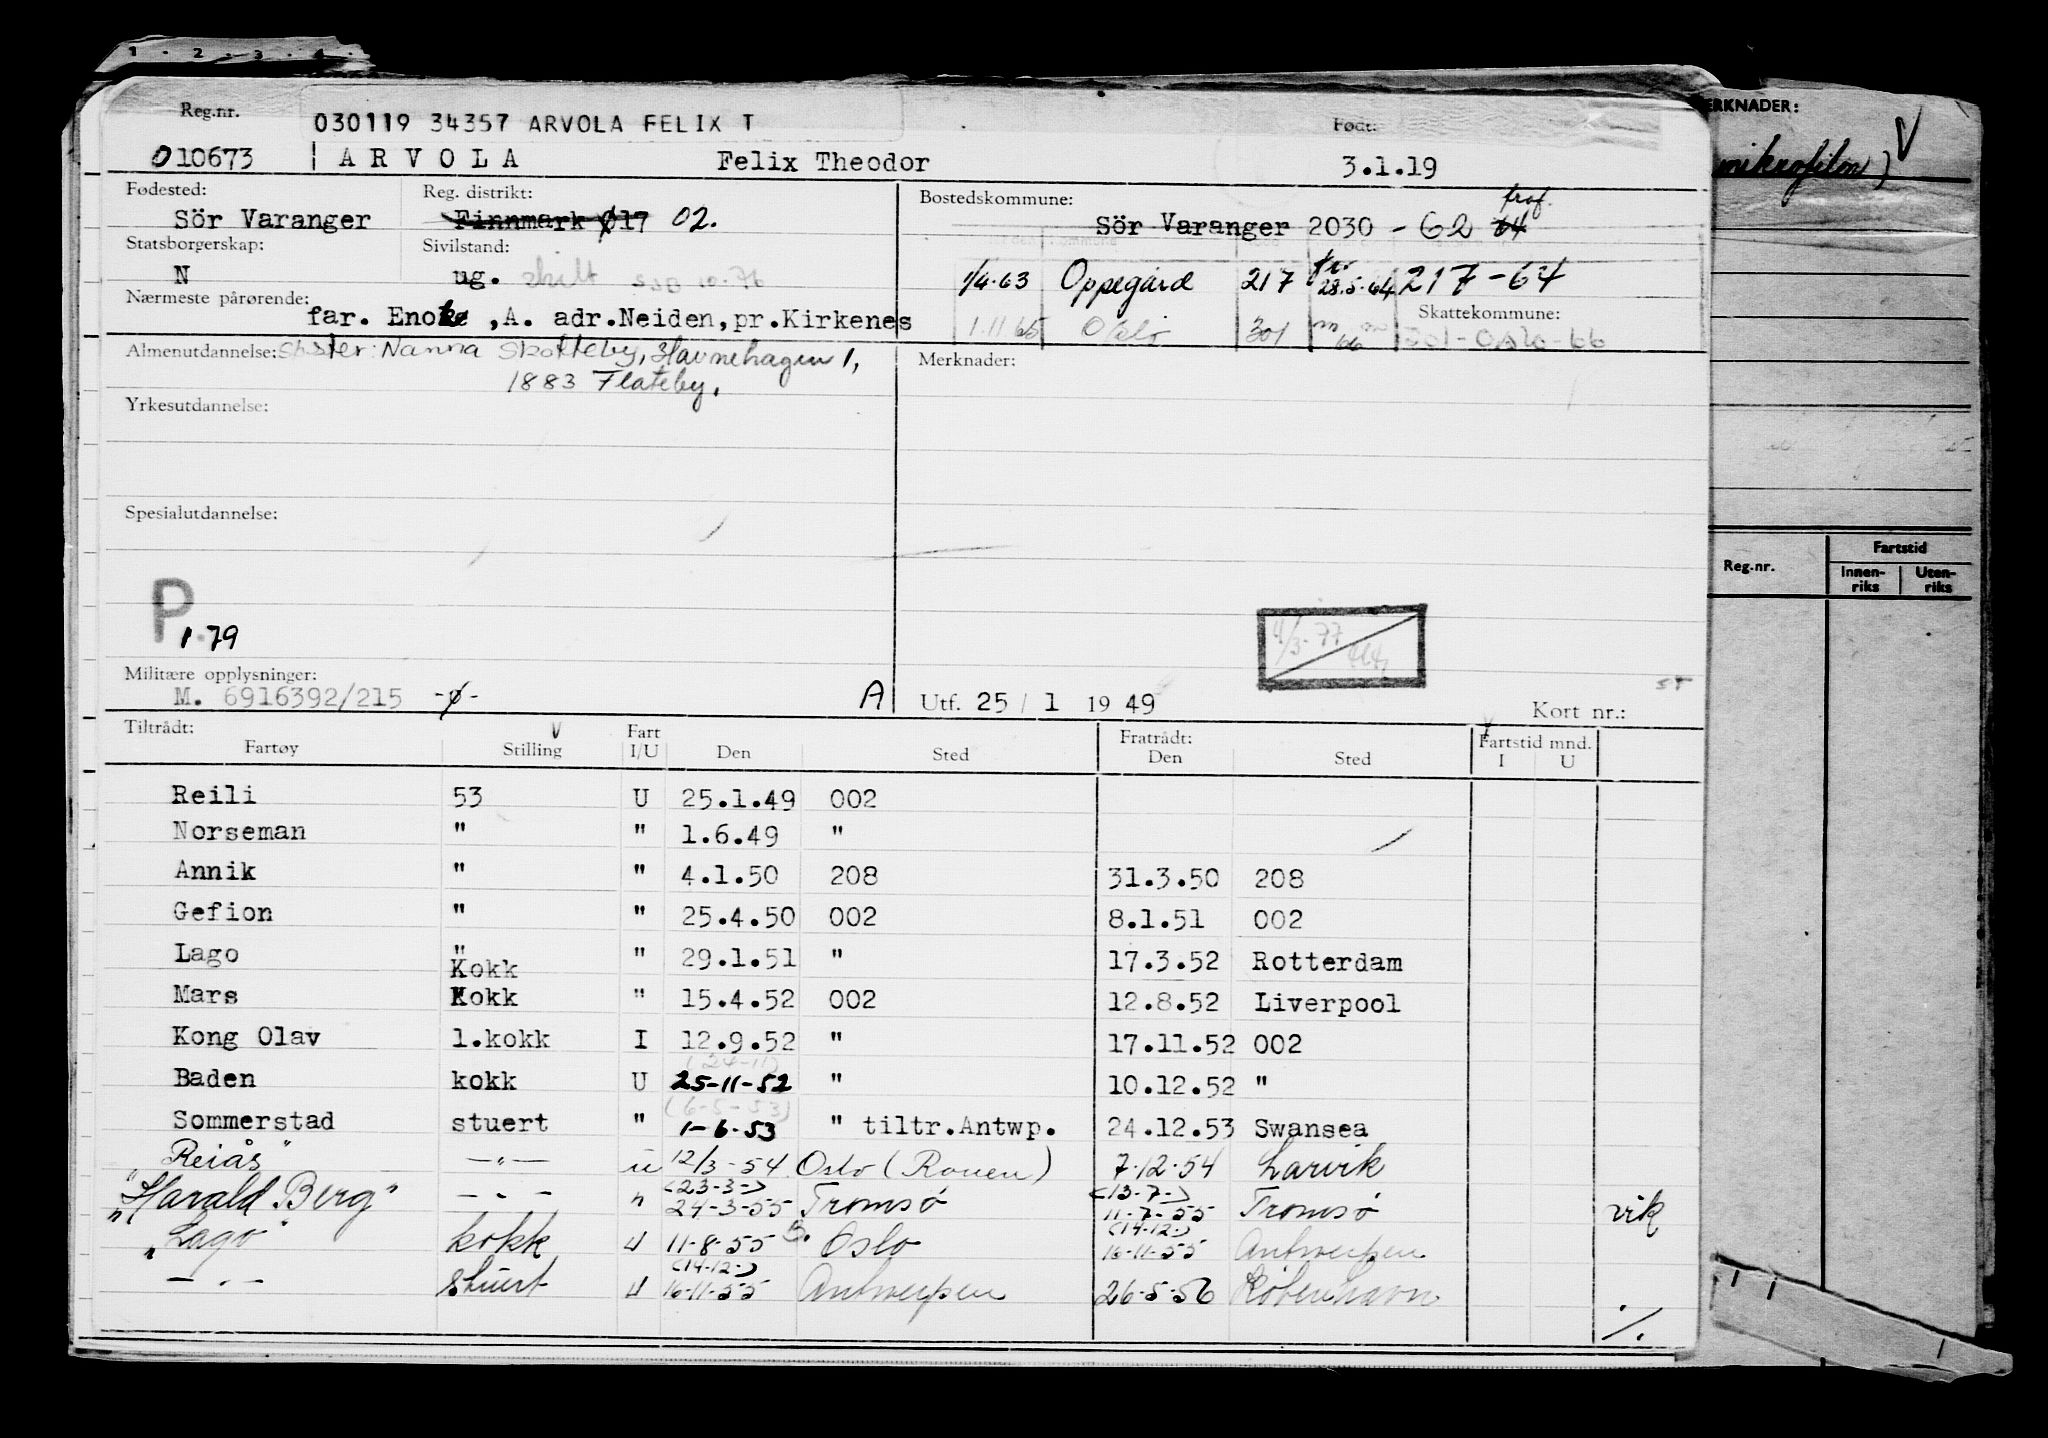 1 - 2 - 3 - 4 -
Reg.nr.
030119 34357 ARVOLA FELIX T
Født:
010673 ARVOLA Felix Theodor 3.1.19
Fødested: Reg. distrikt: Bostedskommune:
Sör Varanger Finnmark Ø17 02. Sör Varanger 2030 - 62 64
Statsborgerskap: Sivilstand:
N ug. skilt 10-76 1/4-63 Oppegård 217 28.5.64 217-64
Nærmeste pårørende: Skattekommune:
far. Enok, A. adr.Neiden,pr.Kirkenes 1.11 65 Oslo 301 301-Oslo-66
Almenutdannelse: Søster: Nanna Skotteby, Havnehagen 1, Merknader:
1883 Flateby.
Yrkesutdannelse:
Spesialutdannelse:
P
1.79
4/3-77
Militære opplysninger:
M. 6916392/215 -ø- A Utf. 25 / 1 19 49 Kort nr.:
Tiltrådt: Fart Fratrådt: Fartstid mnd.
Fartøy Stilling I/U Den Sted Den Sted I U
Reili 53 U 25.1.49 002
Norseman " " 1.6.49 "
Annik " " 4.1.50 208 31.3.50 208
Gefion " " 25.4.50 002 8.1.51 002
Lago " " 29.1.51 " 17.3.52 Rotterdam
Kokk
Mars Kokk " 15.4.52 002 12.8.52 Liverpool
Kong Olav 1.kokk I 12.9.52 " 17.11.52 002
(24-11)
Baden kokk U 25-11-52 " 10.12.52 "
(6-5-53)
Sommerstad stuert " 1-6-53 " tiltr.Antwp. 24.12.53 Swansea
"Reiås" —"— u 12/3-54 Oslo (Rouen) 7-12-54 Larvik
(23-3-) (13-7-)
"Harald Berg" — " — " 24-3-55 Tromsø 11-7-55 Tromsø vik
(14-12-)
"Lago" kokk U 11-8-55 Oslo 16-11-55 Antwerpen
(14-12-)
— " — stuert U 16-11-55 Antwerpen 26-5-56 København
./.
ERKNADER:
mikrofilm) V
Reg.nr. Fartstid
Innen-riks Uten-riks